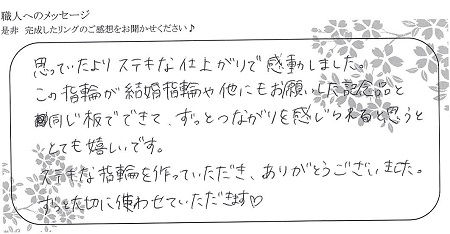 職人へのメッセージ
是非 完成したリングのご感想をお聞かせください♪
思っていたよりステキな仕上がりで感動しました。
この指輪が結婚指輪や他にもお願いした記念品と
同じ板でできて、ずっとつながりを感じられると思うと
とても嬉しいです。
ステキな指輪を作っていただき、ありがとうございました。
ずっと大切に使わせていただきます♡